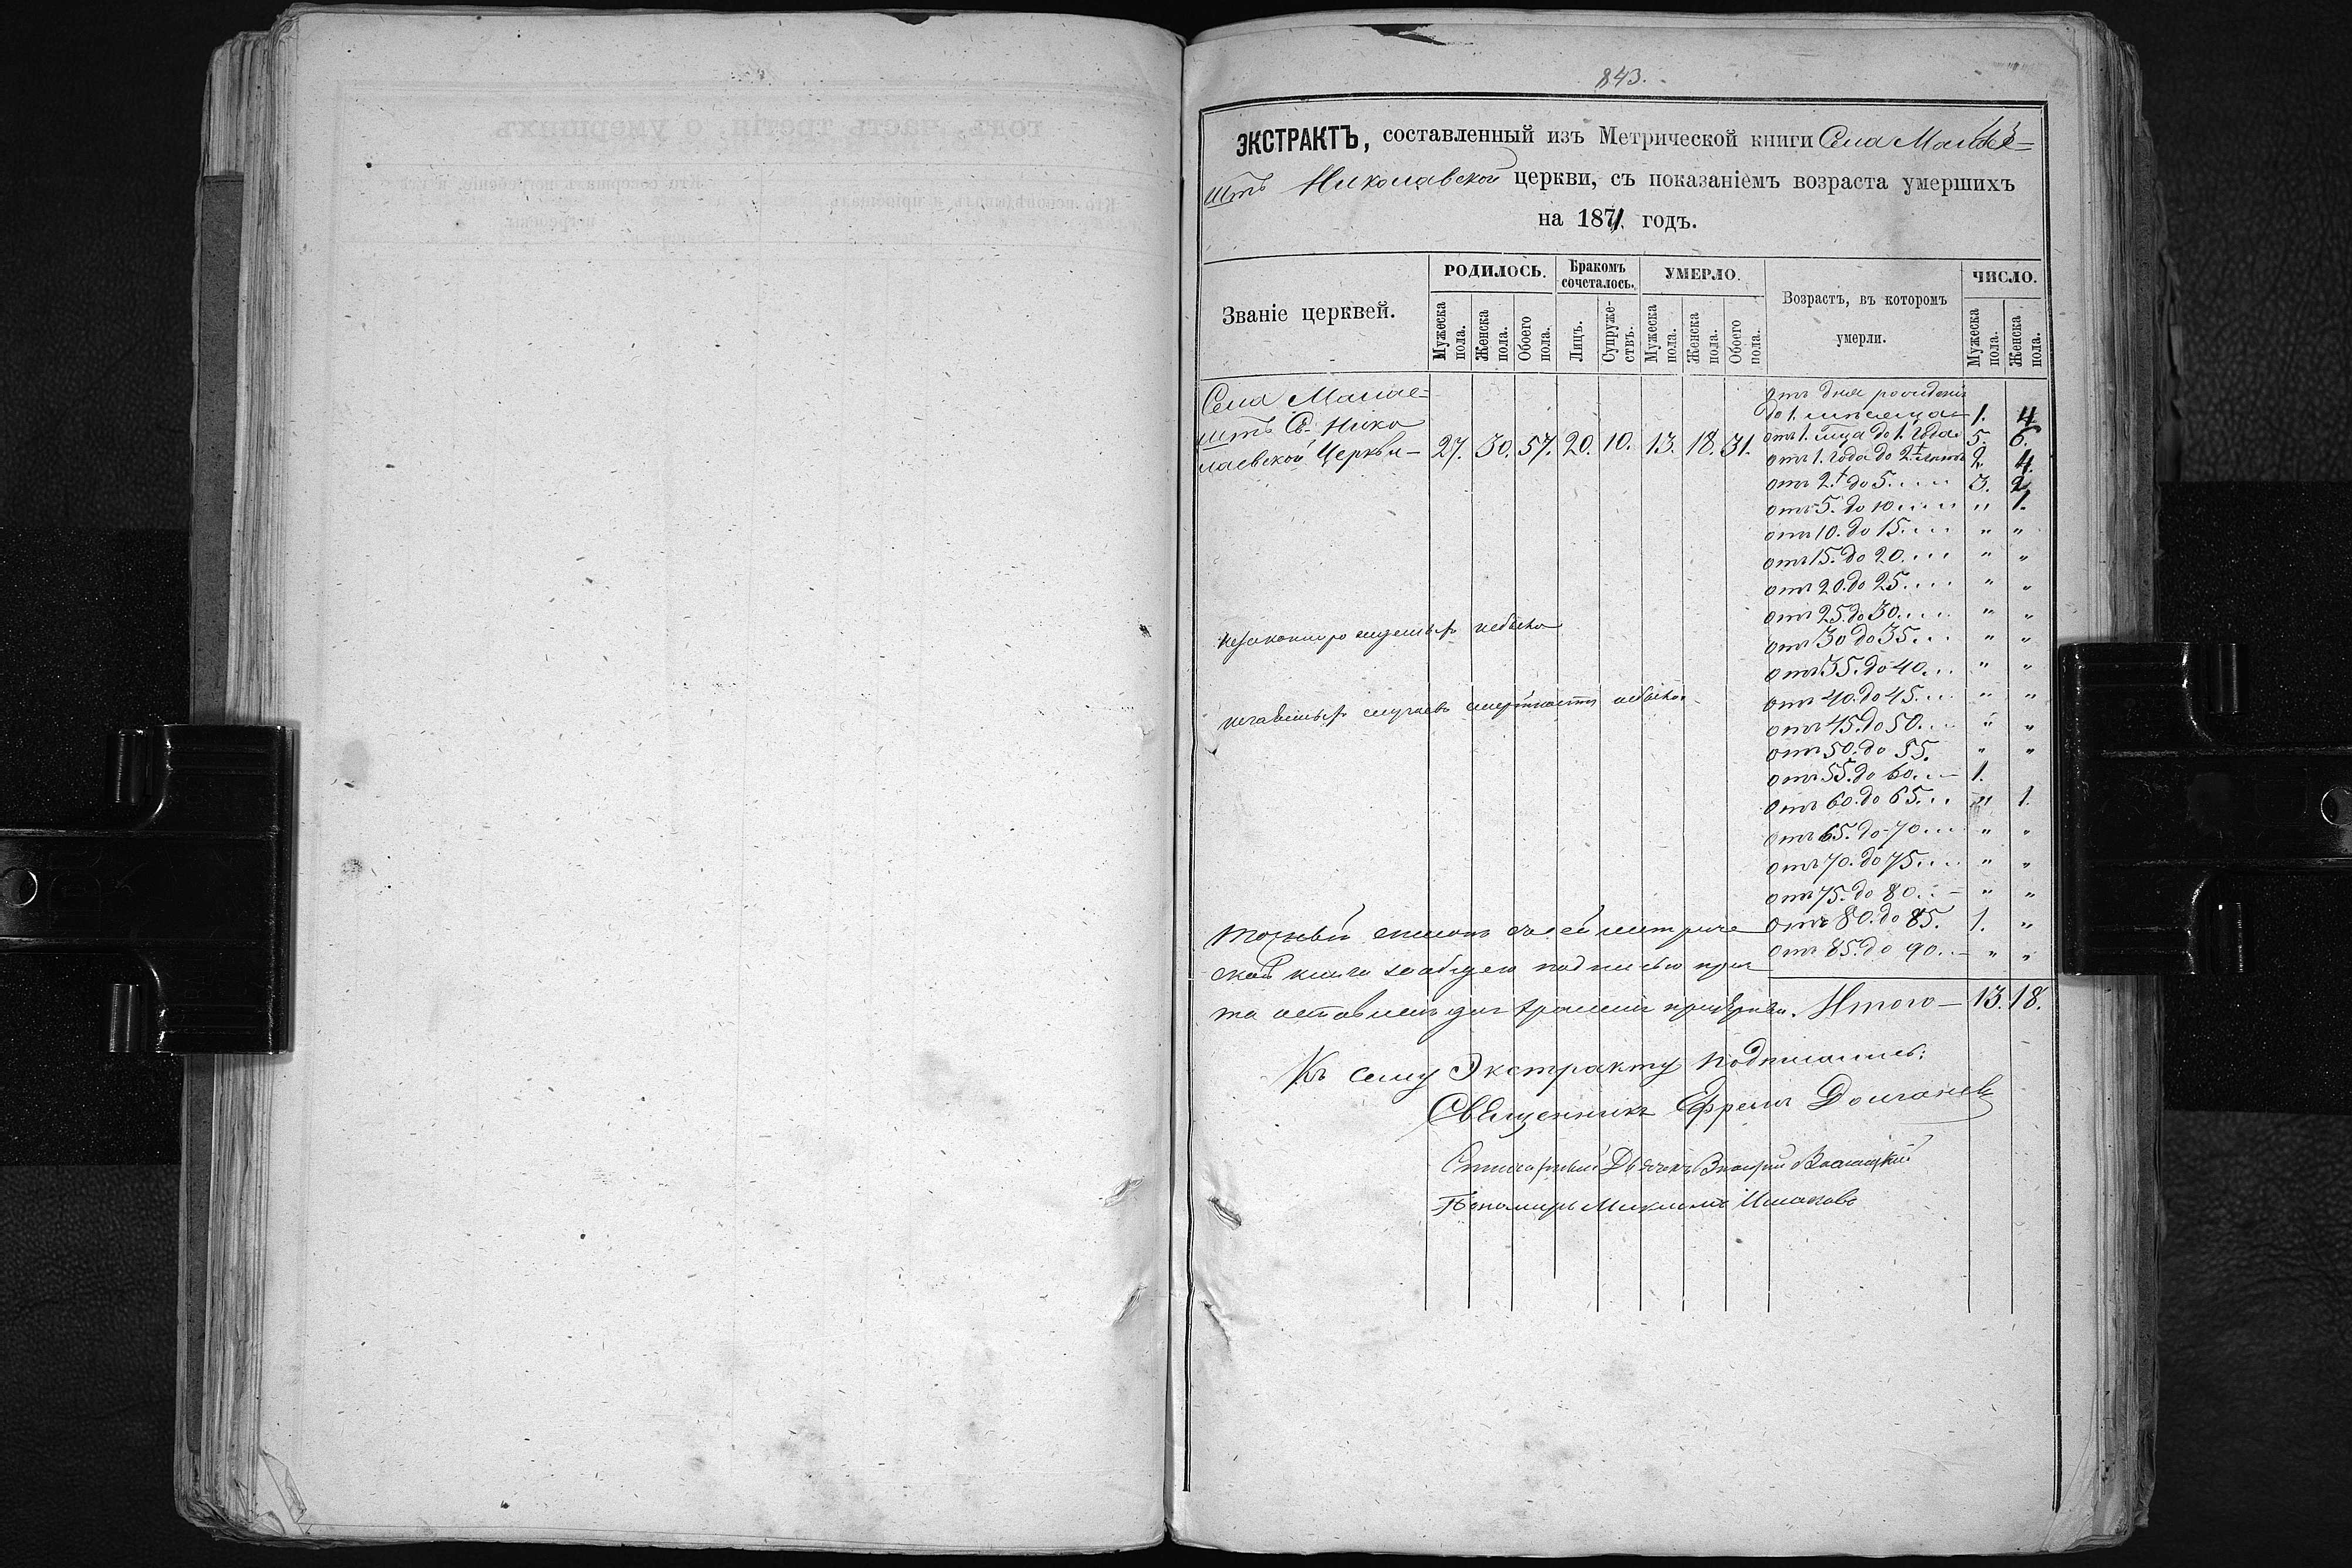 843.
ЭКСТРАКТЪ, составленный изъ Метрической книги Села Малае-
штъ Николавской церкви, съ показаніемъ возраста умершихъ
на 1871. годъ.
Званіе церквей.
РОДИЛОСЬ.
Бракомъ сочеталось.
УМЕРЛО.
Возрастъ, въ которомъ умерли.
ЧИСЛО.
Мужеска пола. Женска пола. Обоего пола. Лицъ. Супруже-ствъ. Мужеска пола. Женска пола. Обоего пола. Мужеска пола. Женска пола.
Села Малае-
штъ Св. Нико
лаевской Церкви- 27. 30. 57. 20. 10. 13. 18. 31.
отъ дня рожденія
до 1. мѣсяца 1. 4
отъ 1. мца до 1. года 5. 6.
отъ 1. года до 2½ лѣтъ 2. 4.
отъ 2.½ до 5. 3. 2
отъ 5. до 10 " 1.
отъ 10. до 15. " "
отъ 15. до 20. " "
отъ 20. до 25. " "
отъ 25. до 30. " "
отъ 30 до 35. " "
отъ 35. до 40. " "
отъ 40. до 45. " "
отъ 45. до 50. " "
отъ 50. до 55. " "
отъ 55. до 60. 1.
отъ 60. до 65. " 1.
отъ 65. до 70 " "
отъ 70. до 75. " "
отъ 75. до 80. " "
отъ 80. до 85. 1. "
отъ 85. до 90. " "
Итого - 13. 18.
небыло
нечаяныхъ случаевъ смертности небыло
точный съ сей метриче
ской книги за общею подписью прич
та оставленъ для храненія при Церкви.
Къ сему Экстракту подписались:
Священникъ Ефремъ
Дьячекъ
Пономарь